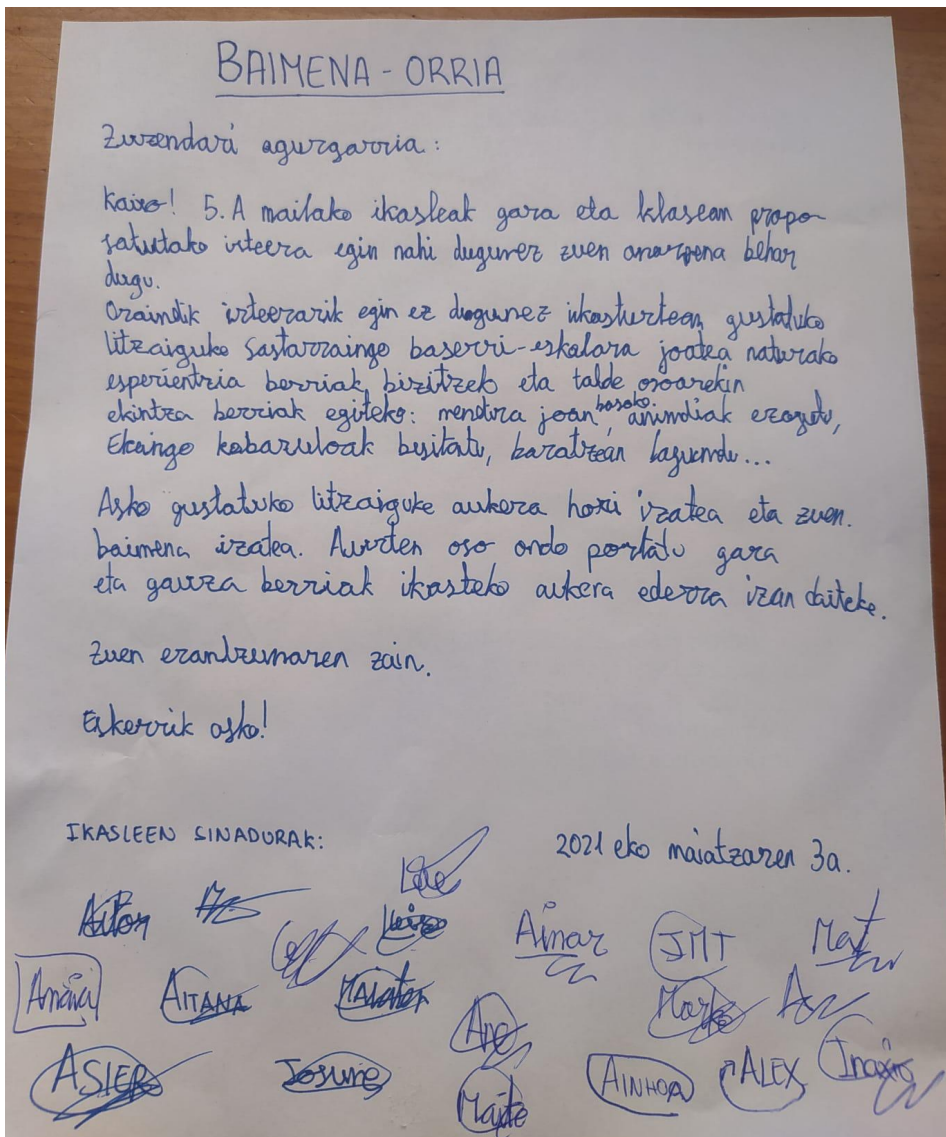 BAIMENA - ORRIA
Zuzendari agurgarria:
Kaixo! 5. A mailako ikasleak gara eta klasean propo-
satutako irteera egin nahi dugunez zuen onarpena behar
dugu.
Oraindik irteerarik egin ez dugunez ikasturtean, gustatuko
litzaiguke Sastarraingo baserri-eskolara joatea naturako
esperientzia berriak bizitzeko eta talde osoarekin
ekintza berriak egiteko: mendira joan, basoko animaliak ezagutu,
Ekaingo kobazuloak bisitatu, baratzean lagundu...
Asko gustatuko litzaiguke aukera hori izatea eta zuen
baimena izatea. Aurten oso ondo portatu gara
eta gauza berriak ikasteko aukera ederra izan daiteke.
Zuen erantzunaren zain.
Eskerrik asko!
IKASLEEN SINADURAK:
2021 eko maiatzaren 3a.
Aitor
Ainar
JMT
Mat
AITANA
Malater
Ane
Marko
ASIER
Josune
Maite
AINHOA
ALEX
Inaxio